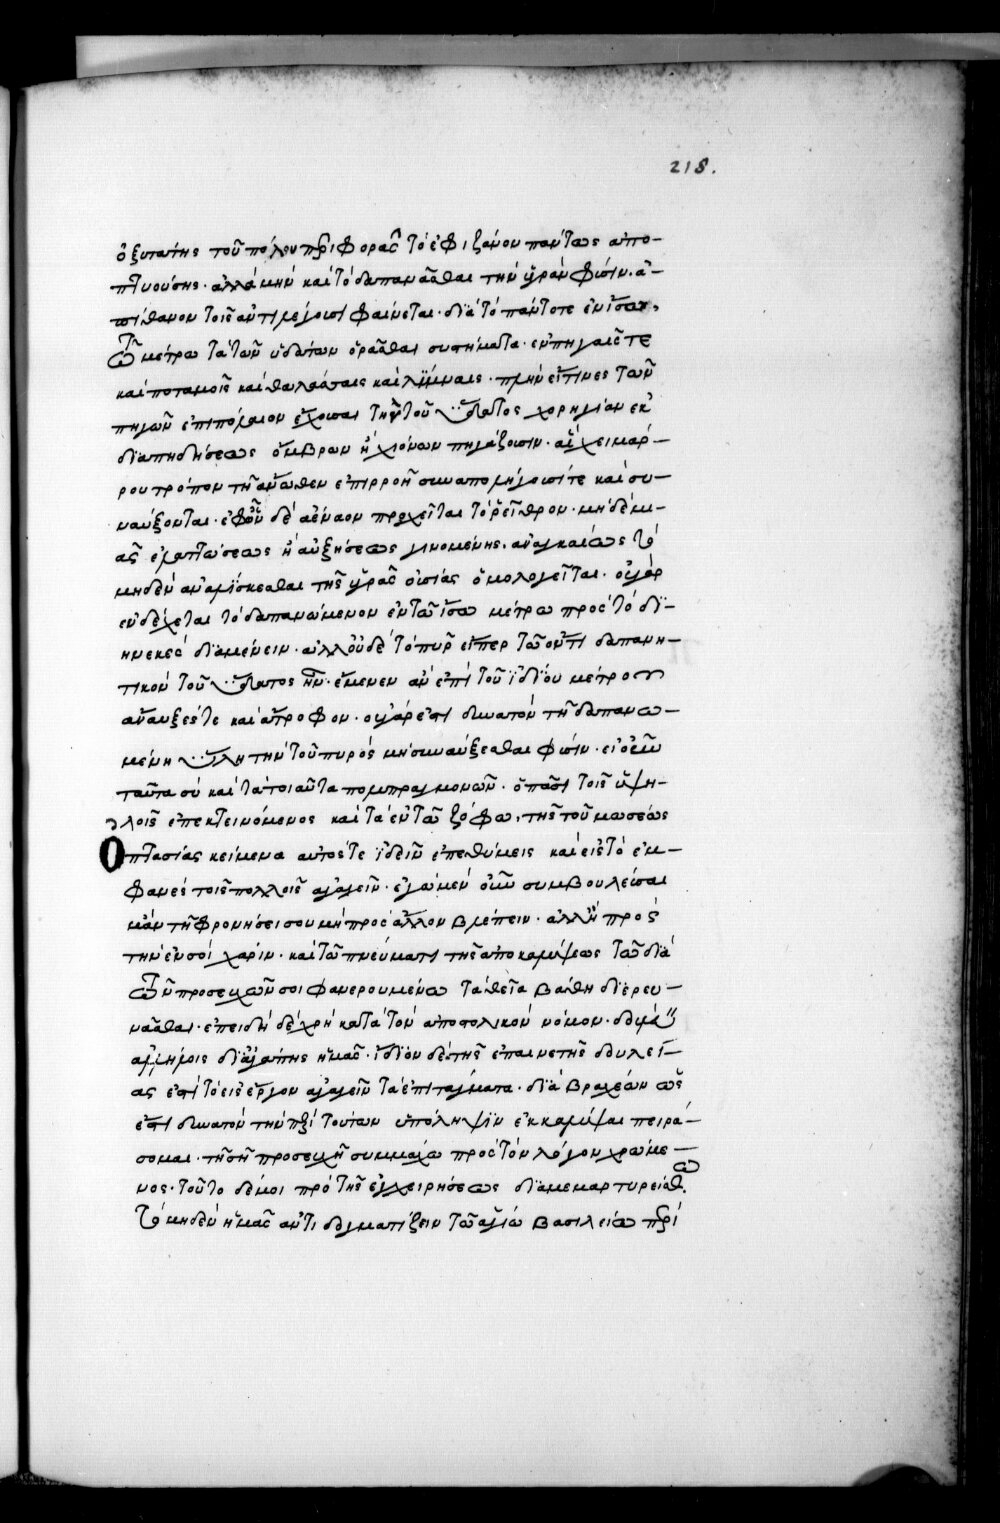 218.
ὀξυτάτης τοῦ πόλου περιφορᾶς τὸ ἐφιζάνον πάντως ἀπο-
πτυούσης. ἀλλὰ μὴν καὶ τὸ δαπανᾶσθαι τὴν ὑγρὰν φύσιν. ἀ-
πίθανον τοῖς ἀντιλέγουσι φαίνεται. διὰ τὸ πάντοτε ἐν ἴσω,
τῶ μέτρω τὰ τῶν ὑδάτων ὁρᾶσθαι συστήματα. ἐν πηγαῖς τε
καὶ ποταμοῖς καὶ θαλάσσαις καὶ λίμναις. πλὴν εἴ τινες τῶν
πηγῶν ἐπιπόλαιον ἔχουσαι τὴν τοῦ ὕδατος χορηγίαν ἐκ
διαπηδήσεως ὄμβρων ἢ χιόνων πηγάζουσιν. αἳ χειμάρ-
ρου τρόπον τῆ ἄνωθεν ἐπιρροῆ συναπολήγουσί τε καὶ συ-
ναύξονται. ἐφ' ὧν δὲ ἀέναον προχεῖται τὸ ῥεῖθρον. μηδεμι-
ᾶς ἐλαττώσεως ἢ αὐξήσεως γινομένης. ἀναγκαίως τὸ
μηδὲν ἀναλίσκεσθαι τῆς ὑγρᾶς οὐσίας ὁμολογεῖται. οὐ γὰρ
ἐνδέχεται τὸ δαπανώμενον ἐν τῶ ἴσω μέτρω πρὸς τὸ δι-
ηνεκὲς διαμένειν. ἀλλ' οὐδὲ τὸ πῦρ εἴπερ τῶ ὄντι δαπανη-
τικὸν τοῦ ὕδατος ἦν. ἔμενεν ἂν ἐπὶ τοῦ ἰδίου μέτρου
ἀναυξές τε καὶ ἄτροφον. οὐ γάρ ἐστι δυνατὸν τῆ δαπανω-
μένη ὕλη τὴν τοῦ πυρὸς μὴ συναύξεσθαι φύσιν. εἰ οὖν
ταῦτα σὺ καὶ τὰ τοιαῦτα πολυπραγμονῶν. ὁ πᾶσι τοῖς ὑψη-
λοῖς ἐπεκτεινόμενος καὶ τὰ ἐν τῶ ζόφω, τῆς τοῦ μωσέως
ὀπτασίας κείμενα αὐτός τε ἰδεῖν ἐπεθύμεις καὶ εἰς τὸ ἐμ-
φανὲς τοῖς πολλοῖς ἀγαγεῖν. ἐγὼ μὲν οὖν συμβουλεύσαι-
μ' ἂν τῆ φρονήσει σου μὴ πρὸς ἄλλον βλέπειν. ἀλλ' ἢ πρὸς
τὴν ἐν σοὶ χάριν. καὶ τῶ πνεύματι τῆς ἀποκαλύψεως τῶ διὰ
τῶν προσευχῶν σοι φανερουμένω τὰ θεῖα βάθη διερευ-
νᾶσθαι. ἐπειδὴ δὲ χρὴ κατὰ τὸν ἀποστολικὸν νόμον. δουλεύειν
ἀλλήλοις δι' ἀγάπης ἡμᾶς. ἴδιον δὲ τῆς ἐπαινετῆς δουλεί-
ας ἐστὶ τὸ εἰς ἔργον ἀγαγεῖν τὰ ἐπιτάγματα. διὰ βραχέων ὡς
ἔστι δυνατὸν τὴν περὶ τούτων ὑπόληψιν ἐκκαλύψαι πειρά-
σομαι. τῆ σῆ προσευχῆ συμμάχω πρὸς τὸν λόγον χρώμε-
νος. τοῦτο δέ μοι πρὸ τῆς ἐγχειρήσεως διαμεμαρτυρείσθω.
τὸ μηδὲν ἡμᾶς ἀντιδογματίζειν τῶ ἁγίω βασιλείω περὶ